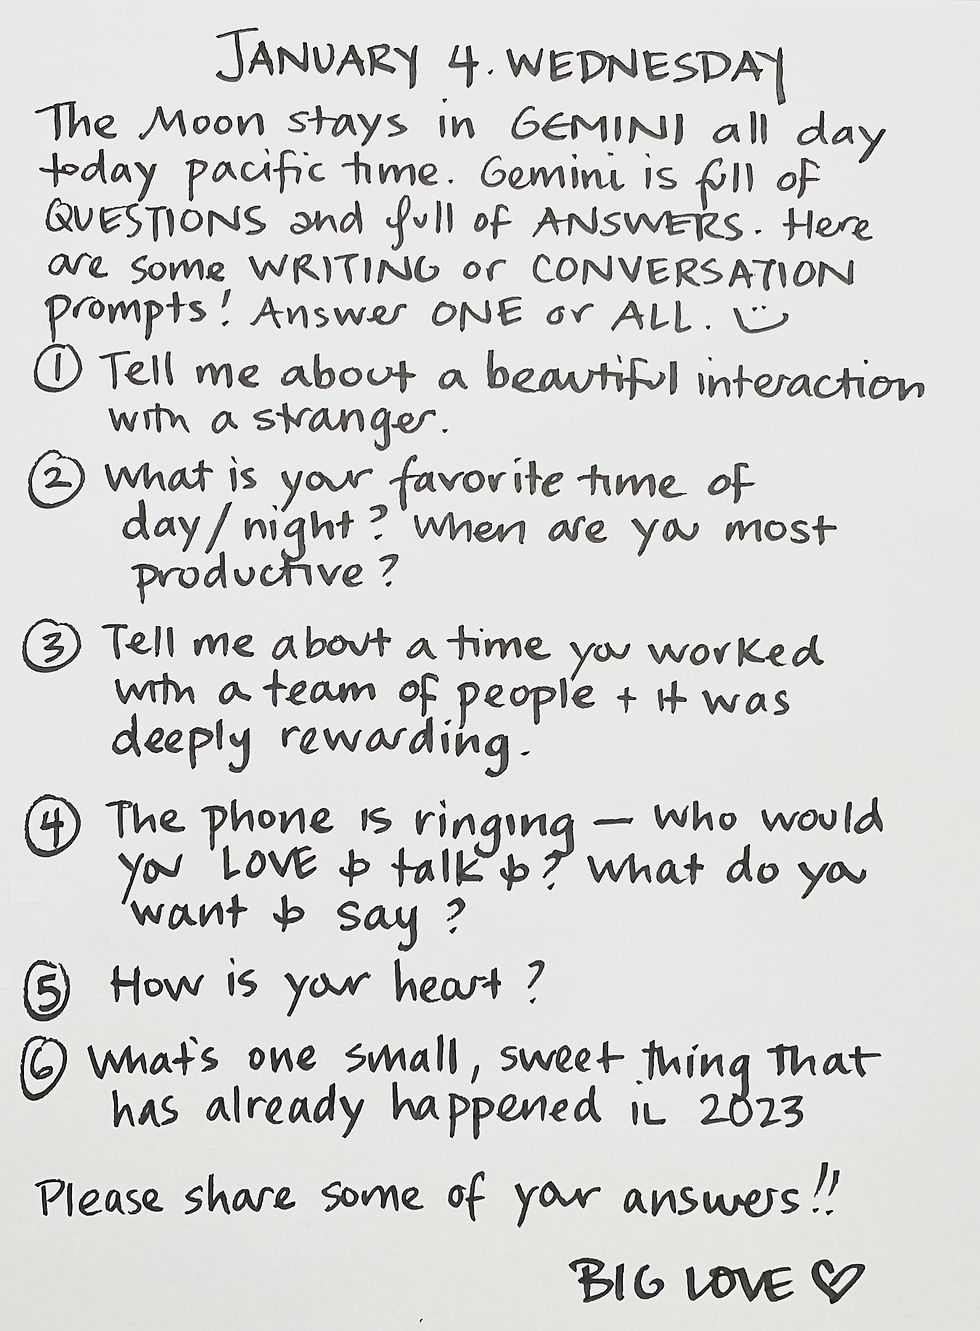 JANUARY 4. WEDNESDAY
The Moon stays in GEMINI all day
today pacific time. Gemini is full of
QUESTIONS and full of ANSWERS. Here
are some WRITING or CONVERSATION
prompts! Answer ONE or ALL. :)
① Tell me about a beautiful interaction
with a stranger.
② What is your favorite time of
day/night? When are you most
productive?
③ Tell me about a time you worked
with a team of people + it was
deeply rewarding.
④ The phone is ringing — who would
you LOVE to talk to? What do you
want to say?
⑤ How is your heart?
⑥ What's one small, sweet thing that
has already happened in 2023
Please share some of your answers!!
BIG LOVE ♡